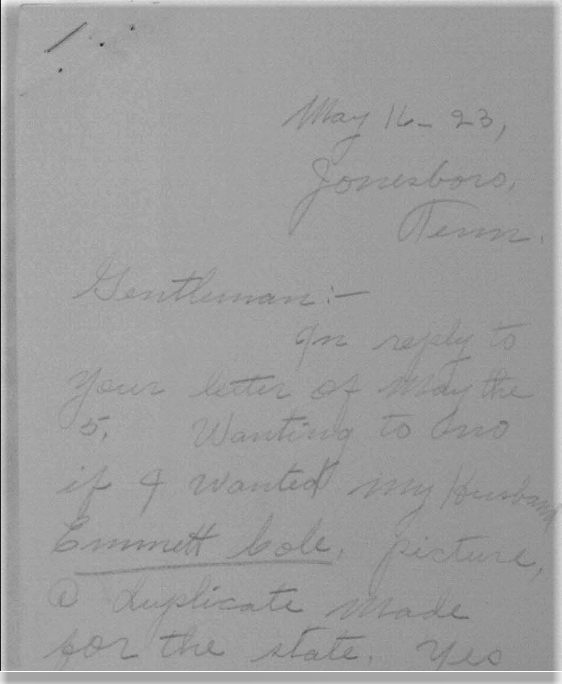 May 16- 23,
Jonesboro,
Tenn.
Gentleman:-
In reply to
Your letter of May the
5. Wanting to kno
if I wanted my Husband
Emmett Cole, picture,
a duplicate made
for the state. Yes